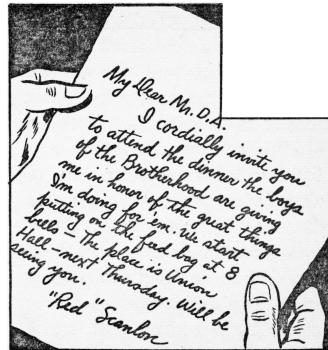 My Dear Mr. D.A.
I cordially invite you
to attend the dinner the boys
of the Brotherhood are giving
me in honor of the great things
I'm doing for 'em. We start
putting on the feed bag at 8
bells - The place is Union
Hall - next Thursday. Will be
seeing you.
"Red" Scanlon